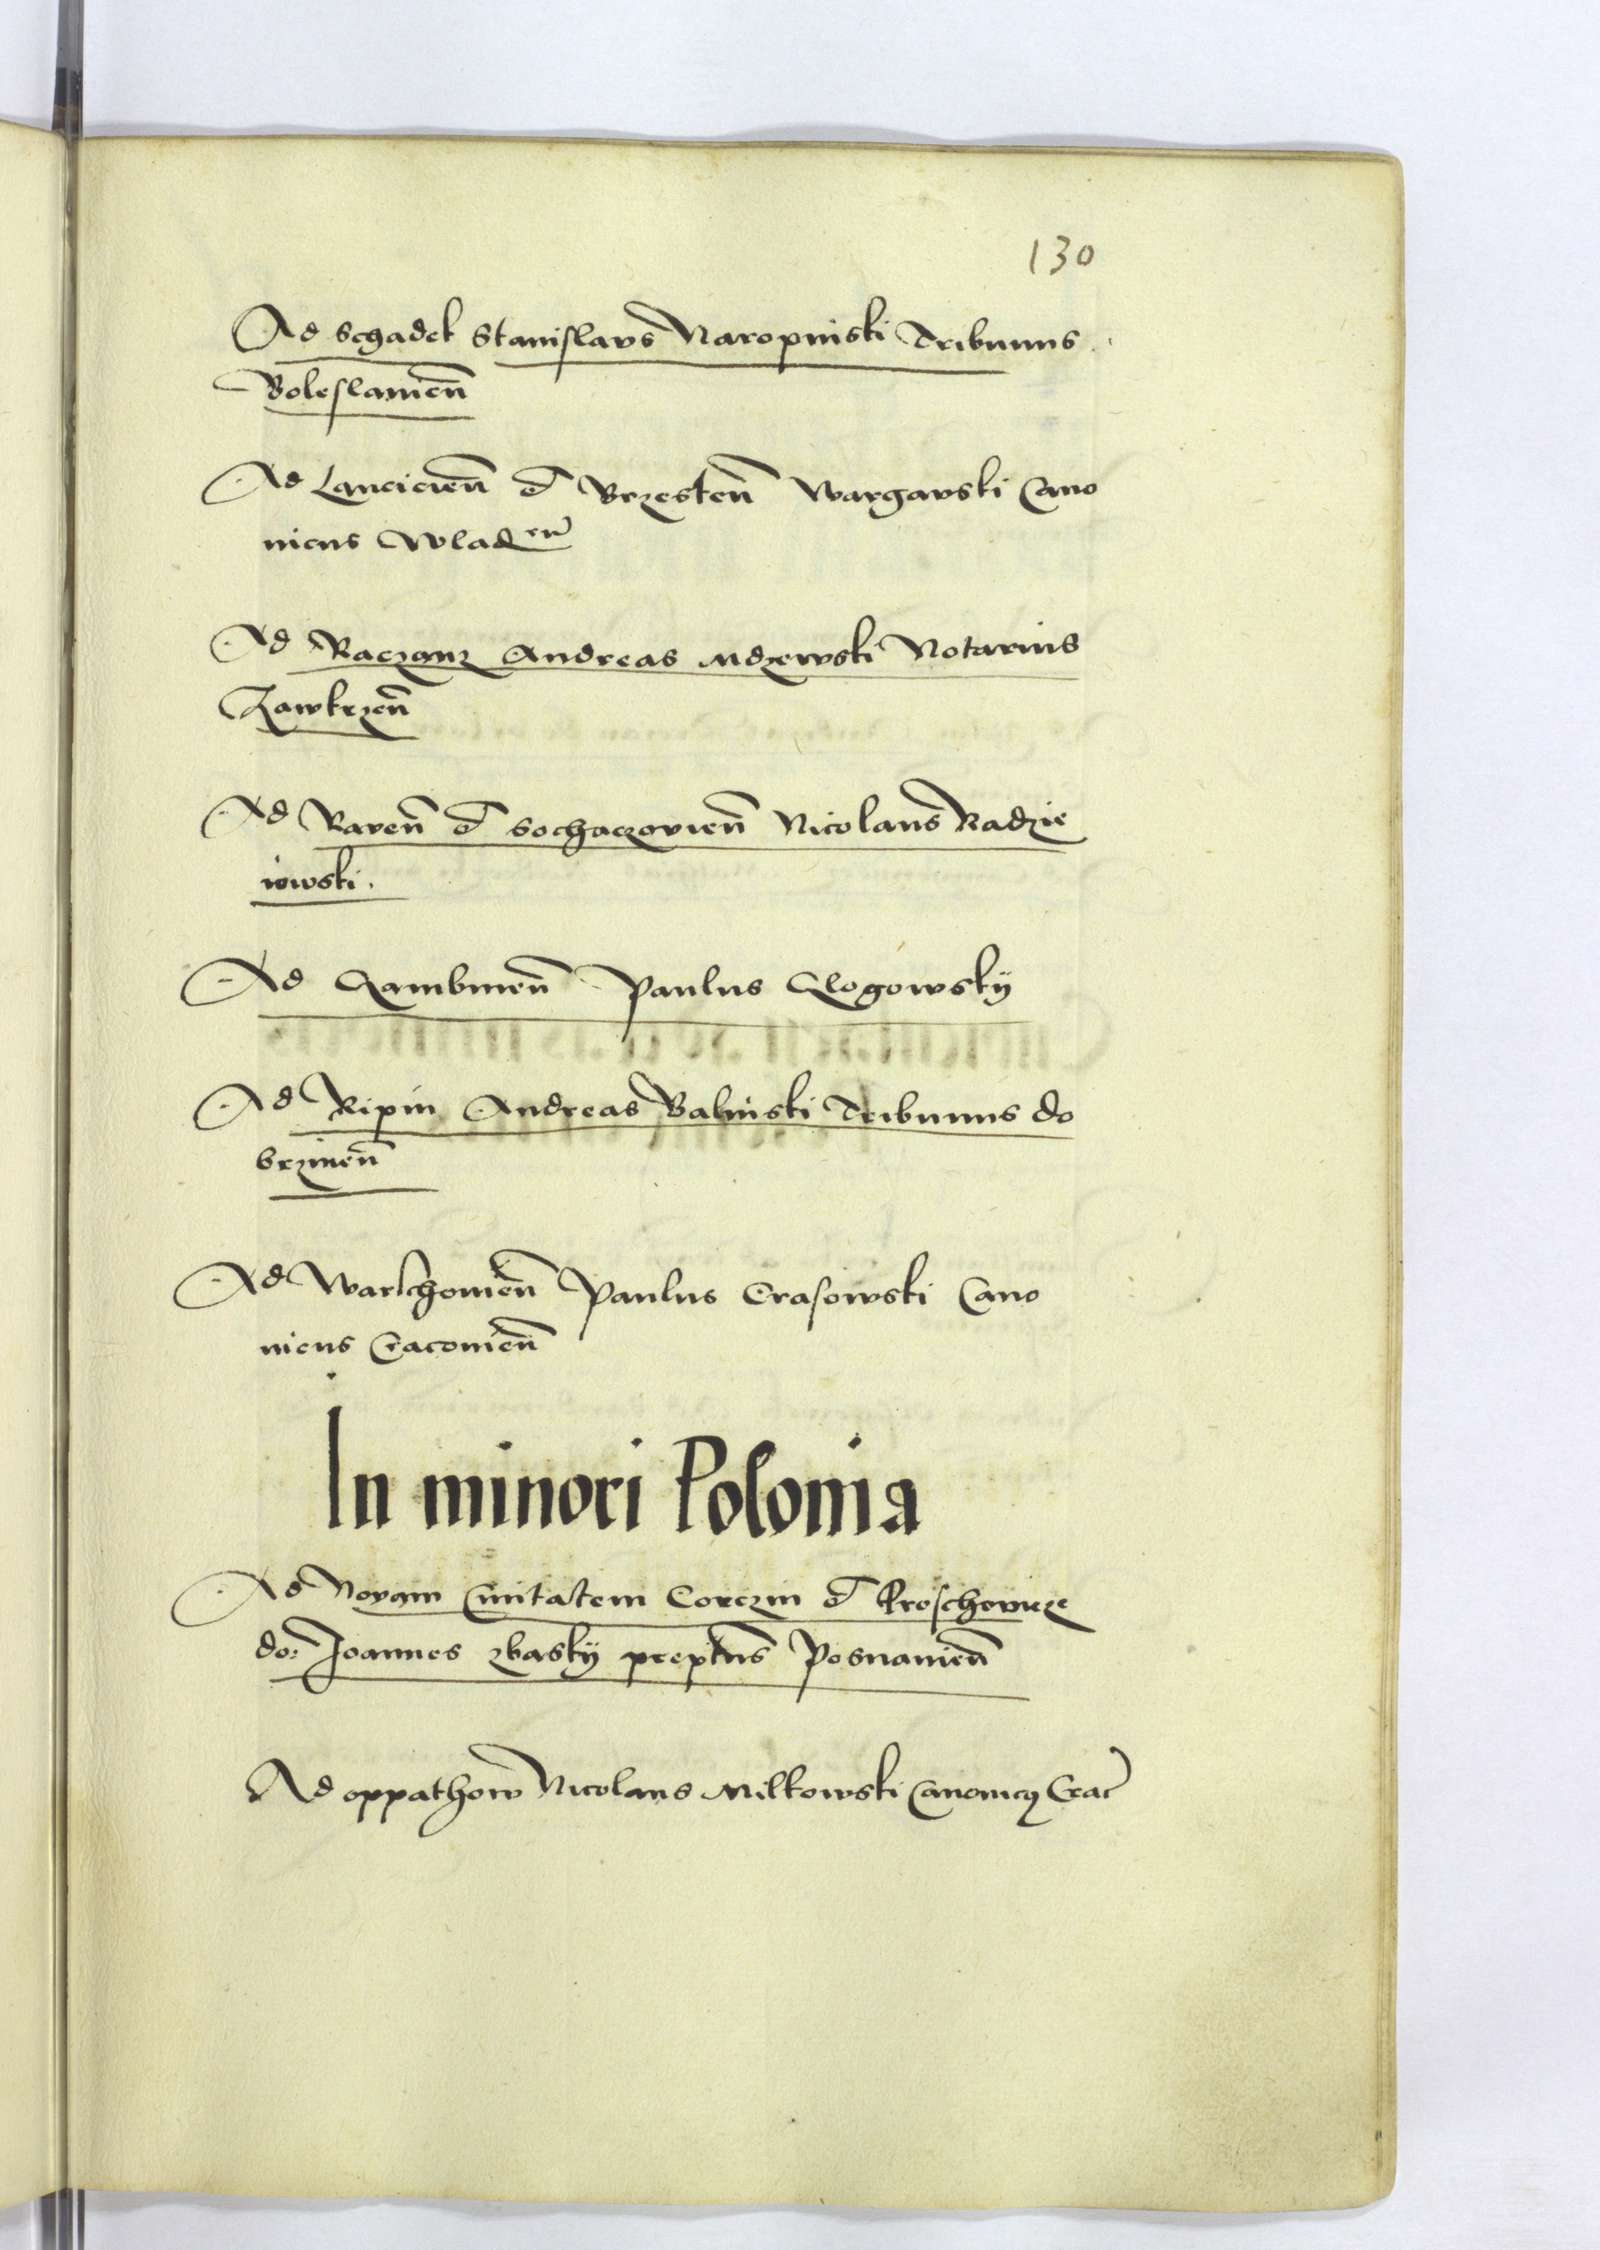 130
Ad Schadek Stanislavs Naropinski Tribunus
Boleslamien̄
Ad Lancicien̄ et Brzesten̄ Wargavski Cano
nicus Wladen̄
Ad Raczanz Andreas Mdzewski Notarius
Zawkrzen̄
Ad Raven̄ et Sochaczovien̄ Nicolaus Radzie
iowski.
Ad Zambinen̄ Paulus Glogowskÿ
Ad Ripin Andreas Balinski Tribunus do
brzinen̄
Ad Warschovien̄ Paulus Crasowski Cano
nicus Cracovien̄
In minori Polonia
Ad Novam Civitatem Corczin et Proschovicze
do: Joannes zbaskÿ preptus Posnanien̄
Ad oppathow Nicolaus Milkowski Canonicꝰ Crac̄